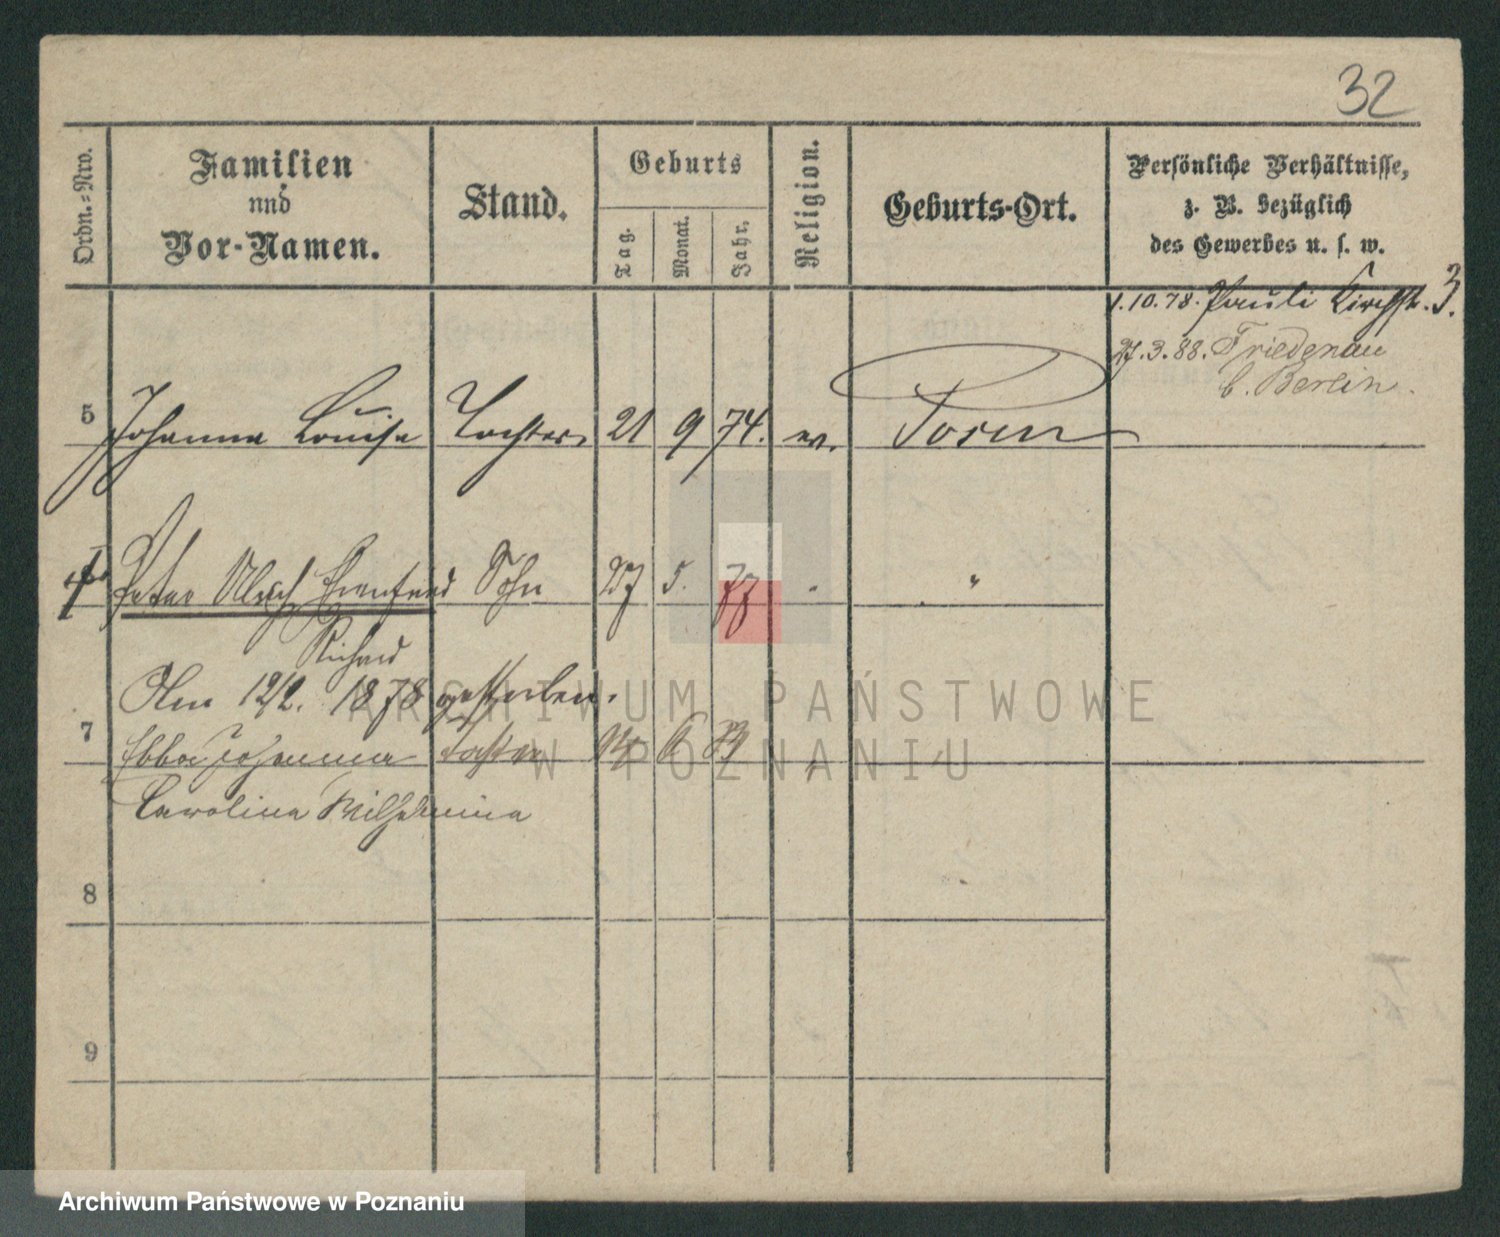 32
Ordn.-Nro.
Familien
und
Vor-Namen.
Stand.
Geburts
Tag.
Monat.
Jahr.
Religion.
Geburts-Ort.
Persönliche Verhältnisse,
z. B. bezüglich
des Gewerbes u. s. w.
1.10.78. Pauli Kirchstr. 3.
27.3.88. Friedenau
b. Berlin.
5 Johanna Louise Tochter 21 9 74. ev. Posen
Peter Ulrich Ehrenfried Sohn 27 5. 77 " "
Richard
Am 12/2. 1878 gestorben.
7 Ebba Johanna Tochter 6
Carolina Wilhelmina
8
9
ARCHIWUM PAŃSTWOWE
W POZNANIU
Archiwum Państwowe w Poznaniu